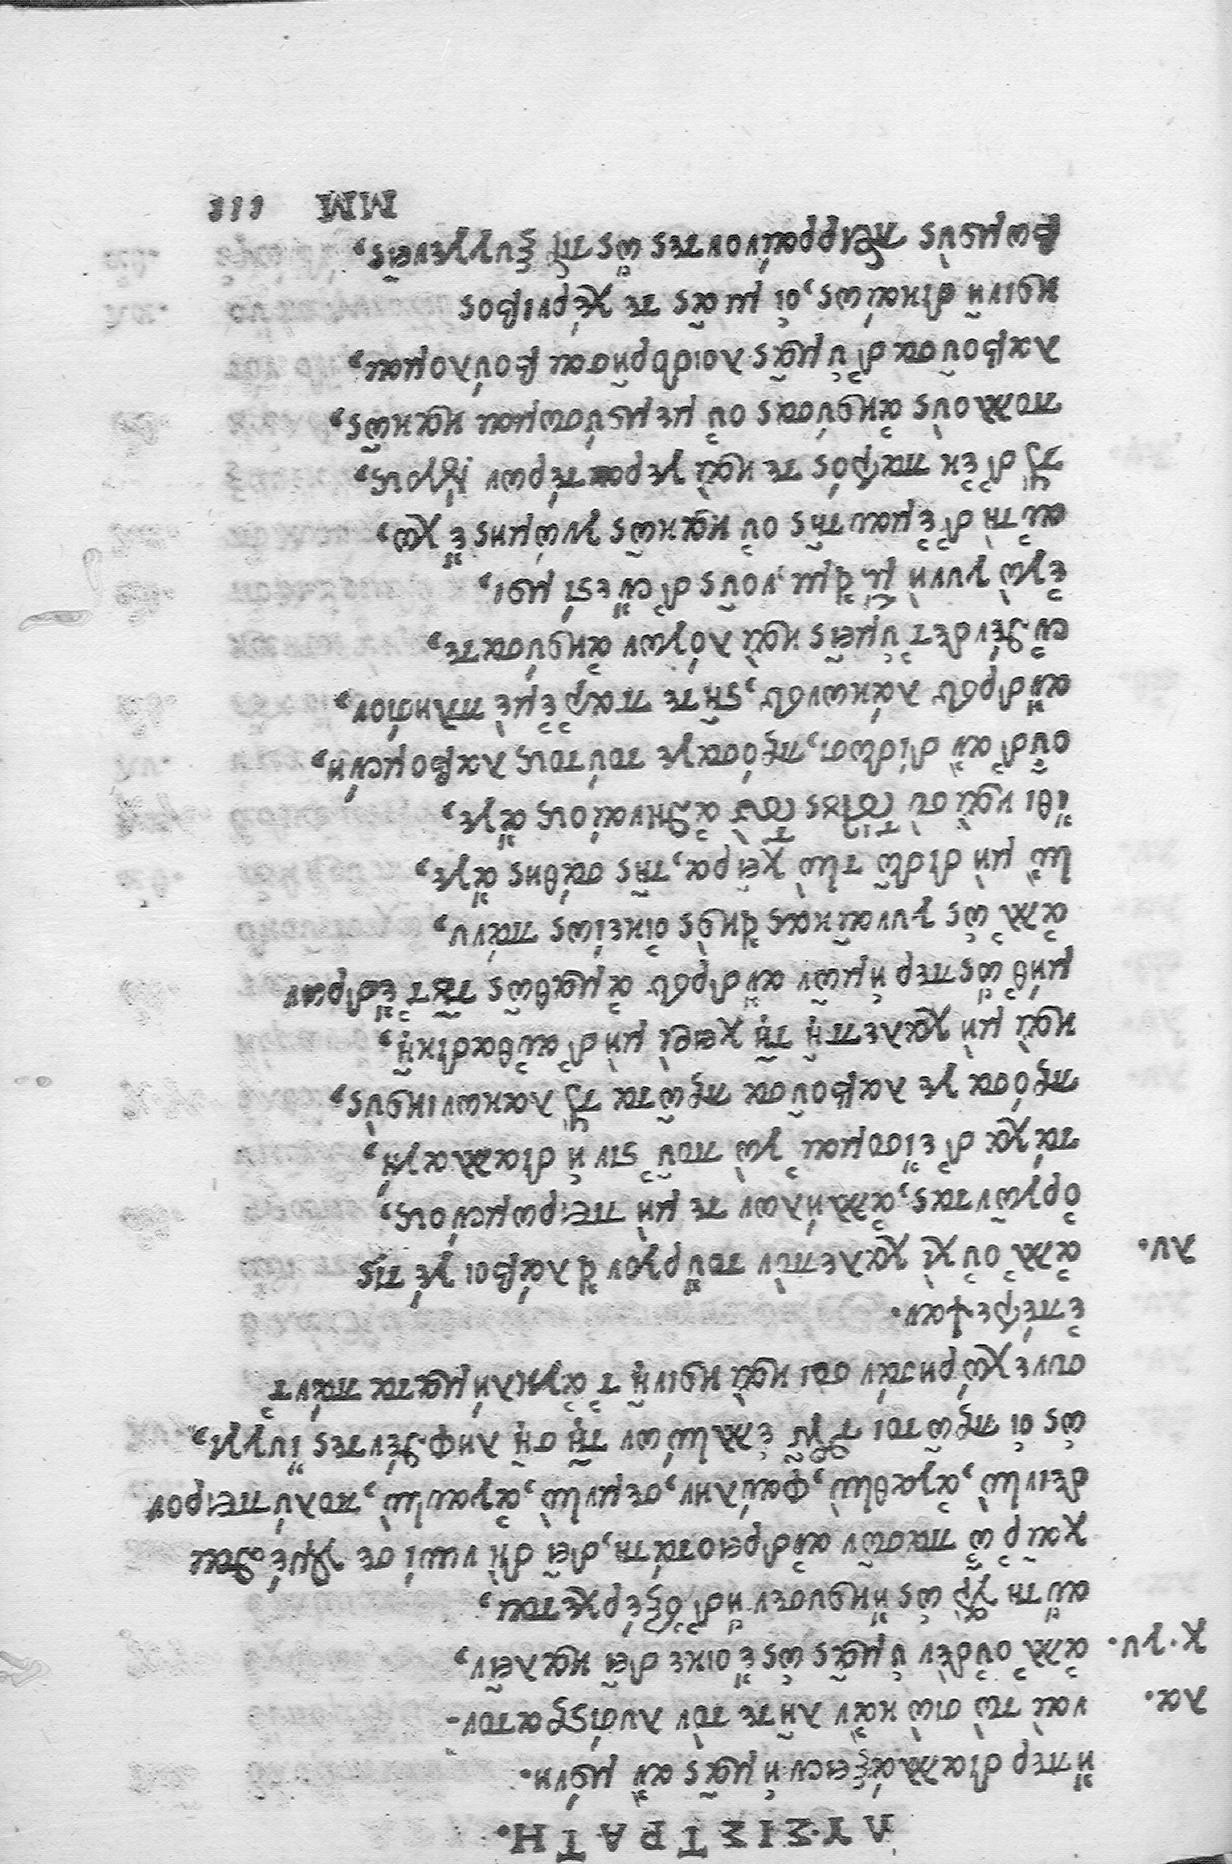 ΛΥΣΙΣΤΡΑΤΗ.
ἥπερ διαλλάξειεν ἡμᾶς ἂν μόνη.
λα. ναὶ τὼ σιὼ κἂν λῆτε τὸν λυσίστρατον.
χ.γυ. ἀλλ' οὐδὲν ὑμᾶς ὡς ἔοικε δεῖ καλεῖν,
αὕτη γὰρ ὡς ἤκουσεν ἥδ' ἐξέρχεται,
χαῖρ' ὦ πασῶν ἀνδρειοτάτη, δεῖ δὴ νυνί σε γενέσθαι
δεινὴν, ἀγαθὴν, φαύλην, σεμνὴν, ἀγανὴν, πολύπειρον
ὡς οἱ πρῶτοι τῶν ἑλλήνων τῇ σῇ ληφθέντες ἴυγγι,
συνεχώρησάν σοι καὶ κοινῇ τ' ἀγκλήματα πάντ'
ἐπέτρεψαν.
λυ. ἀλλ' οὐχὶ χαλεπὸν τοὔργον εἰ λάβοι γέ τις
ὀργῶντας, ἀλλήλων τε μὴ πειρωμένους,
τάχα δ' εἴσομαι 'γὼ ποῦ 'στιν ἡ διαλλαγή,
πρόσαγε λαβοῦσα πρῶτα τοὺς λακωνικοὺς,
καὶ μὴ χαλεπῇ τῇ χειρὶ μὴ δ' αὐθαδικῇ,
μήθ' ὥσπερ ἡμῶν ἄνδρες ἀμαθῶς τοῦτ' ἔδρων
ἀλλ' ὡς γυναῖκας εἰκὸς οἰκείως πάνυ,
ἢν μὴ διδῷ τὴν χεῖρα, τῆς σάθης ἄγε,
ἴθι καὶ σὺ τούτους τοὺς ἀθηναίους ἄγε,
οὗ δ' ἂν διδῶσι, πρόσαγε τούτους λαβομένη,
ἄνδρες λάκωνες, στῆτε παρ' ἐμὲ πλησίον,
ἐνθένδε τ' ὑμεῖς καὶ λόγων ἀκούσατε,
ἐγὼ γυνὴ μέν εἰμι, νοῦς δ' ἔνεστί μοι,
αὐτὴ δ' ἐμαυτῆς οὐ κακῶς γνώμης ἔχω,
τοὺς δ' ἐκ πατρός τε καὶ γεραιτέρων λόγους,
πολλοὺς ἀκούσασ' οὐ μεμούσωμαι κακῶς,
λαβοῦσα δ' ὑμᾶς λοιδορῆσαι βούλομαι,
κοινῇ δικαίως, οἱ μιᾶς τε χέρνιβος
βωμοὺς περιρραίνοντες ὥσπερ ξυγγενεῖς,
MM iii